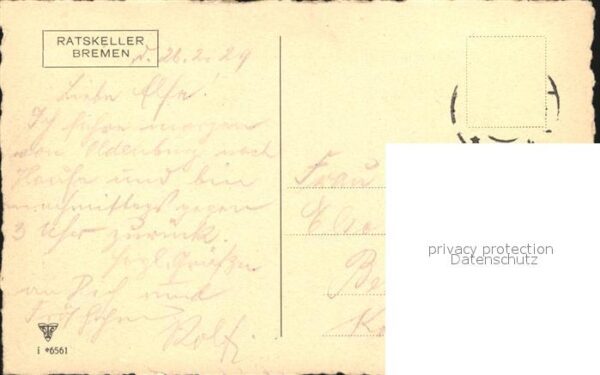 RATSKELLER
BREMEN
d. 26.2.29
Liebe Else!
Ich fahre morgen
von Oldenburg nach
Hause und bin
nachmittags gegen
3 Uhr zurück.
Herzl. Grüße
an Dich und
Rolf.
Frau
Be
privacy protection
Datenschutz
i *6561